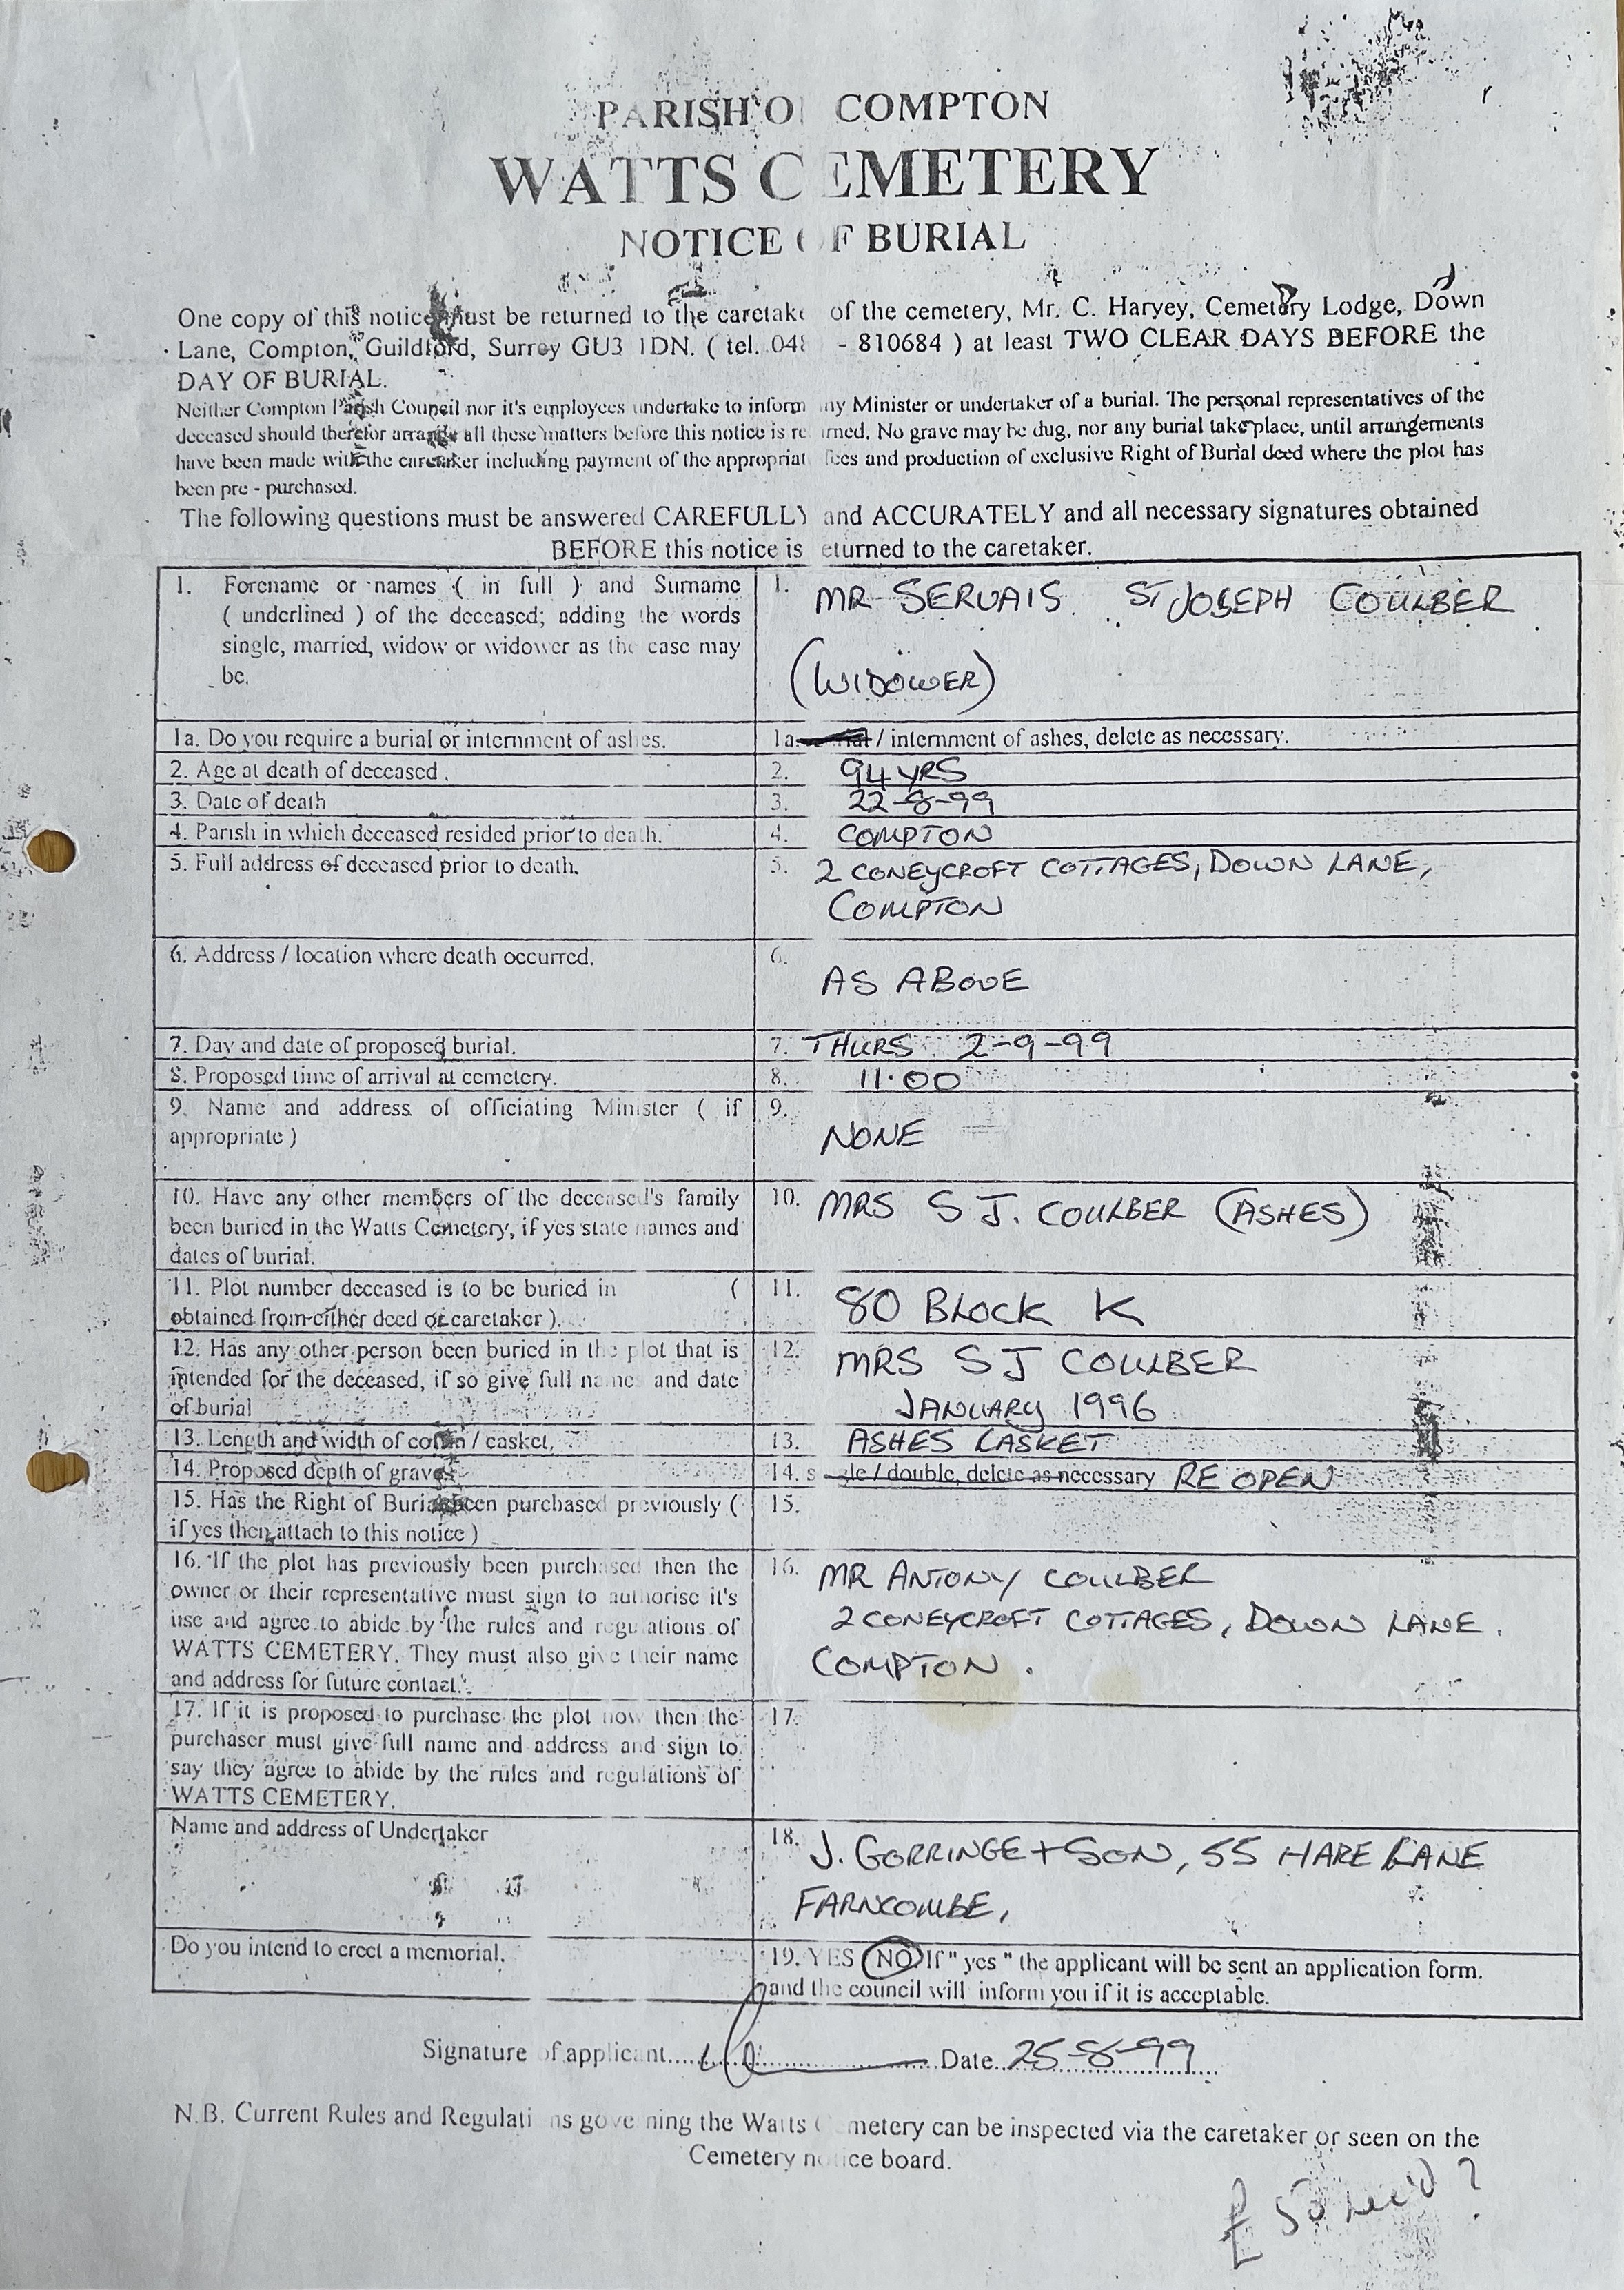 PARISH O COMPTON
WATTS CEMETERY
NOTICE OF BURIAL
One copy of this notice must be returned to the caretake of the cemetery, Mr. C. Harvey, Cemetery Lodge, Down
Lane, Compton, Guildford, Surrey GU3 1DN. ( tel. 048 - 810684 ) at least TWO CLEAR DAYS BEFORE the
DAY OF BURIAL.
Neither Compton Parish Council nor it's employees undertake to inform ny Minister or undertaker of a burial. The personal representatives of the
deceased should therefor arrange all these matters before this notice is re rned. No grave may be dug, nor any burial take place, until arrangements
have been made with the caretaker including payment of the appropriat fees and production of exclusive Right of Burial deed where the plot has
been pre - purchased.
The following questions must be answered CAREFULLY and ACCURATELY and all necessary signatures obtained
BEFORE this notice is eturned to the caretaker.
1. Forename or names ( in full ) and Surname
( underlined ) of the deceased; adding the words
single, married, widow or widower as the case may
be.
1. MR SERVAIS ST JOSEPH COULBER
(WIDOWER)
1a. Do you require a burial or internment of ashes.
1a. / internment of ashes, delete as necessary.
2. Age at death of deceased .
2. 94 YRS
3. Date of death
3. 22-8-99
4. Parish in which deceased resided prior to death.
4. COMPTON
5. Full address of deceased prior to death.
5. 2 CONEYCROFT COTTAGES, DOWN LANE,
COMPTON
6. Address / location where death occurred.
6.
AS ABOVE
7. Day and date of proposed burial.
7. THURS 2-9-99
8. Proposed time of arrival at cemetery.
8. 11.00
9. Name and address of officiating Minister ( if
appropriate )
9.
NONE
10. Have any other members of the deceased's family
been buried in the Watts Cemetery, if yes state names and
dates of burial.
10. MRS S J. COULBER (ASHES)
11. Plot number deceased is to be buried in (
obtained from either deed or caretaker ).
11. 80 BLOCK K
12. Has any other person been buried in the plot that is
intended for the deceased, if so give full names and date
of burial
12. MRS S J COULBER
JANUARY 1996
13. Length and width of coffin / casket.
13. ASHES CASKET
14. Proposed depth of grave
14. s gle / double, delete as necessary RE OPEN
15. Has the Right of Burial been purchased previously (
if yes then attach to this notice )
15.
16. If the plot has previously been purchased then the
owner or their representative must sign to authorise it's
use and agree to abide by the rules and regulations of
WATTS CEMETERY. They must also give their name
and address for future contact.
16. MR ANTONY COULBER
2 CONEYCROFT COTTAGES, DOWN LANE.
COMPTON.
17. If it is proposed to purchase the plot now then the
purchaser must give full name and address and sign to
say they agree to abide by the rules and regulations of
WATTS CEMETERY.
17.
Name and address of Undertaker
18. J. GORRINGE + SON, 55 HARE LANE
FARNCOMBE,
Do you intend to erect a memorial.
19. YES NO If " yes " the applicant will be sent an application form.
and the council will inform you if it is acceptable.
Signature of applicant Date 25-8-99
N.B. Current Rules and Regulati ns gove ning the Watts C metery can be inspected via the caretaker or seen on the
Cemetery notice board.
£50 rec'd ?